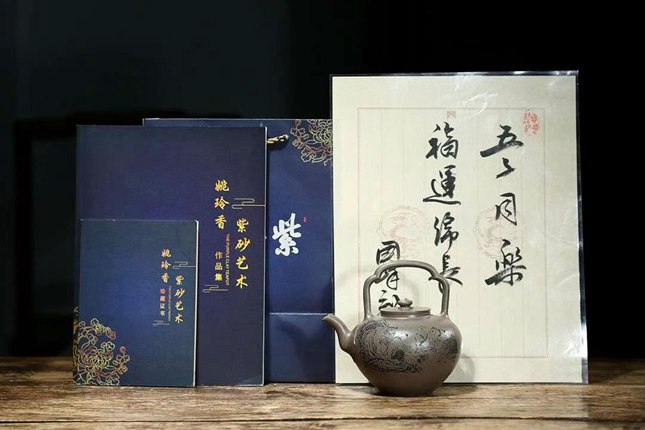 姚玲香
紫砂艺术
THE PURPLE CLAY TEAPOT
作品集
姚玲香
紫砂艺术
珍藏证书
紫
五子同樂
福運綿長